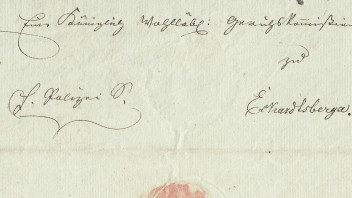 Eine Königlich Wohllöbl: Gerichtskommission
zu
H. Polizei S.
Eckardtsberga.